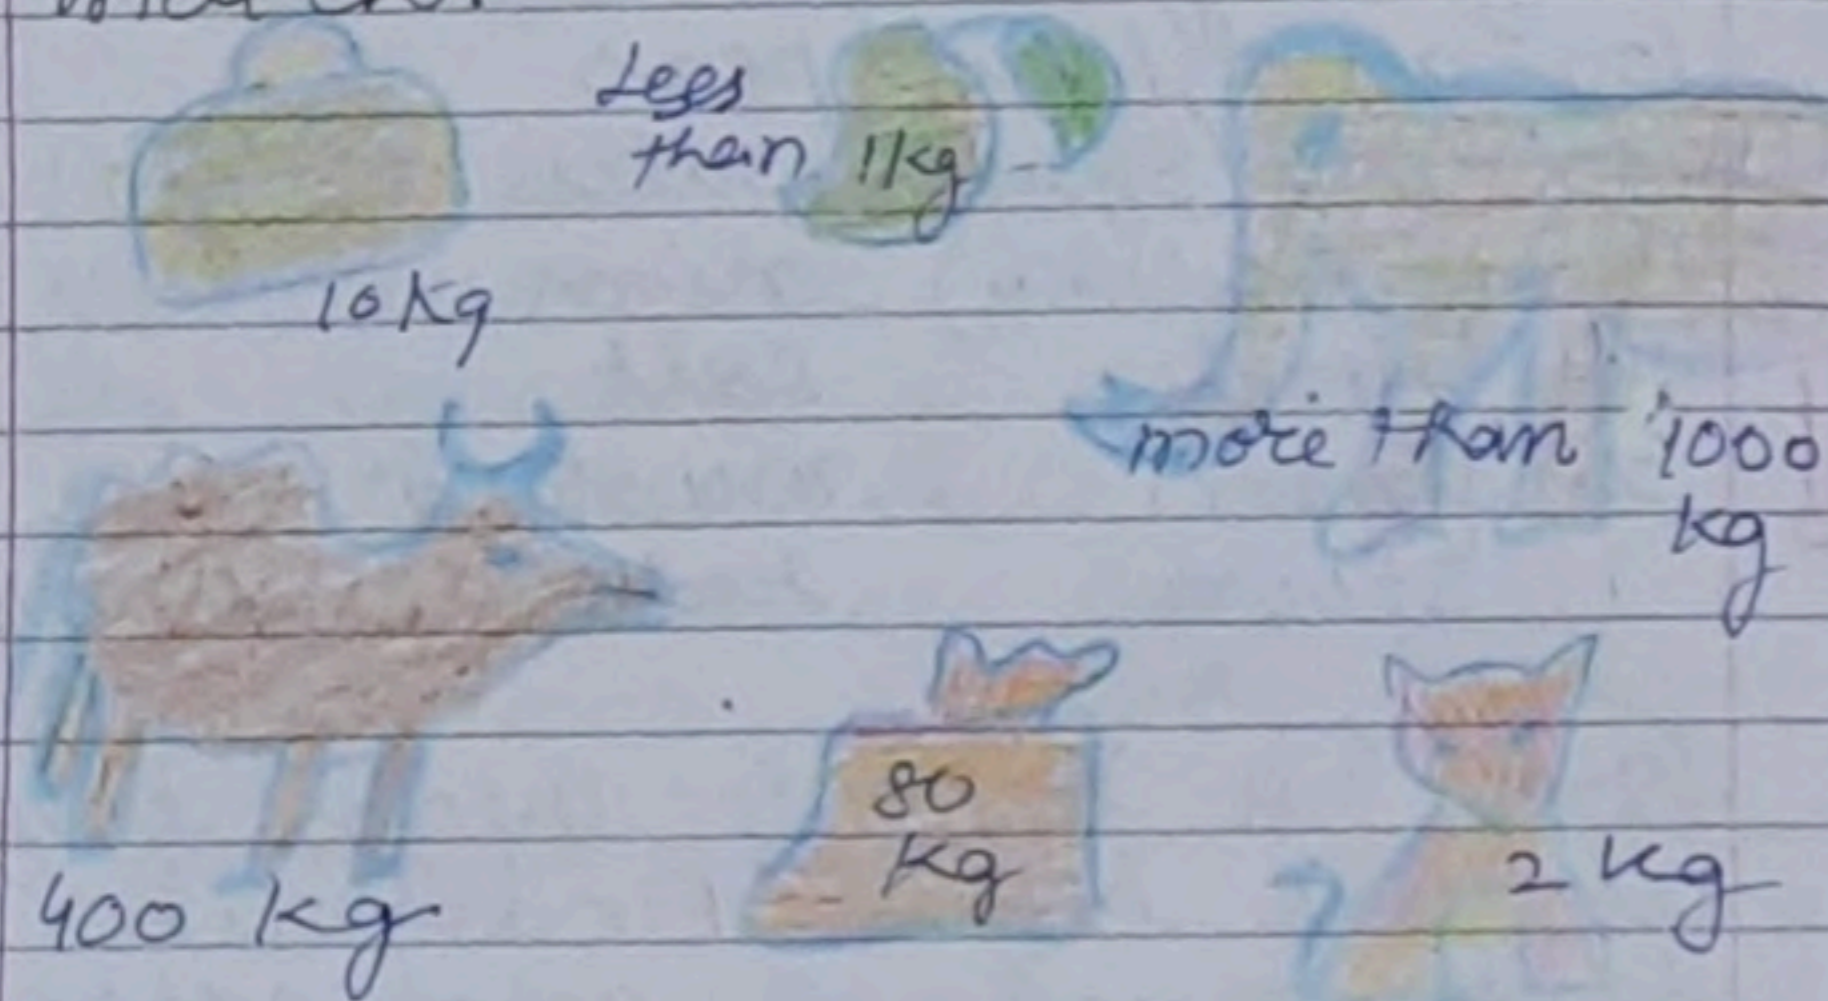 10 Kg
Less
than 1kg
more than 1000
kg
400 kg
80
Kg
2 kg